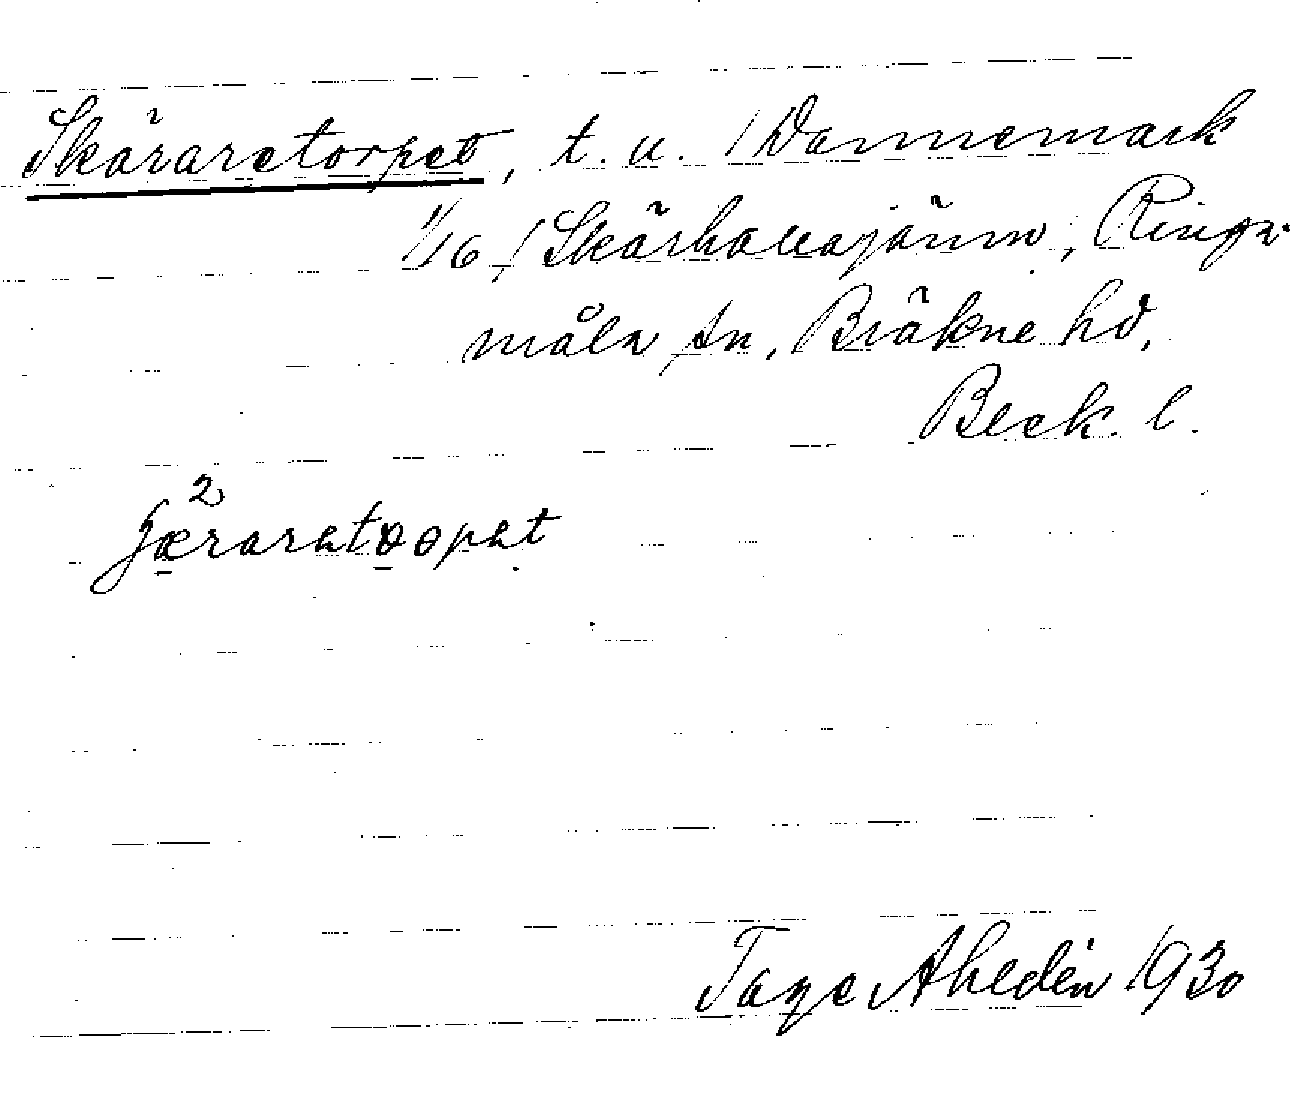 Skäraretorpet, t. u. 1 Dannemark
1/16, 1 Skärhavajäum, Ringa-
måla sn, Bräkne hd,
Bleck. l.
2
ʃæraratoopat
Tage Ahldén 1930